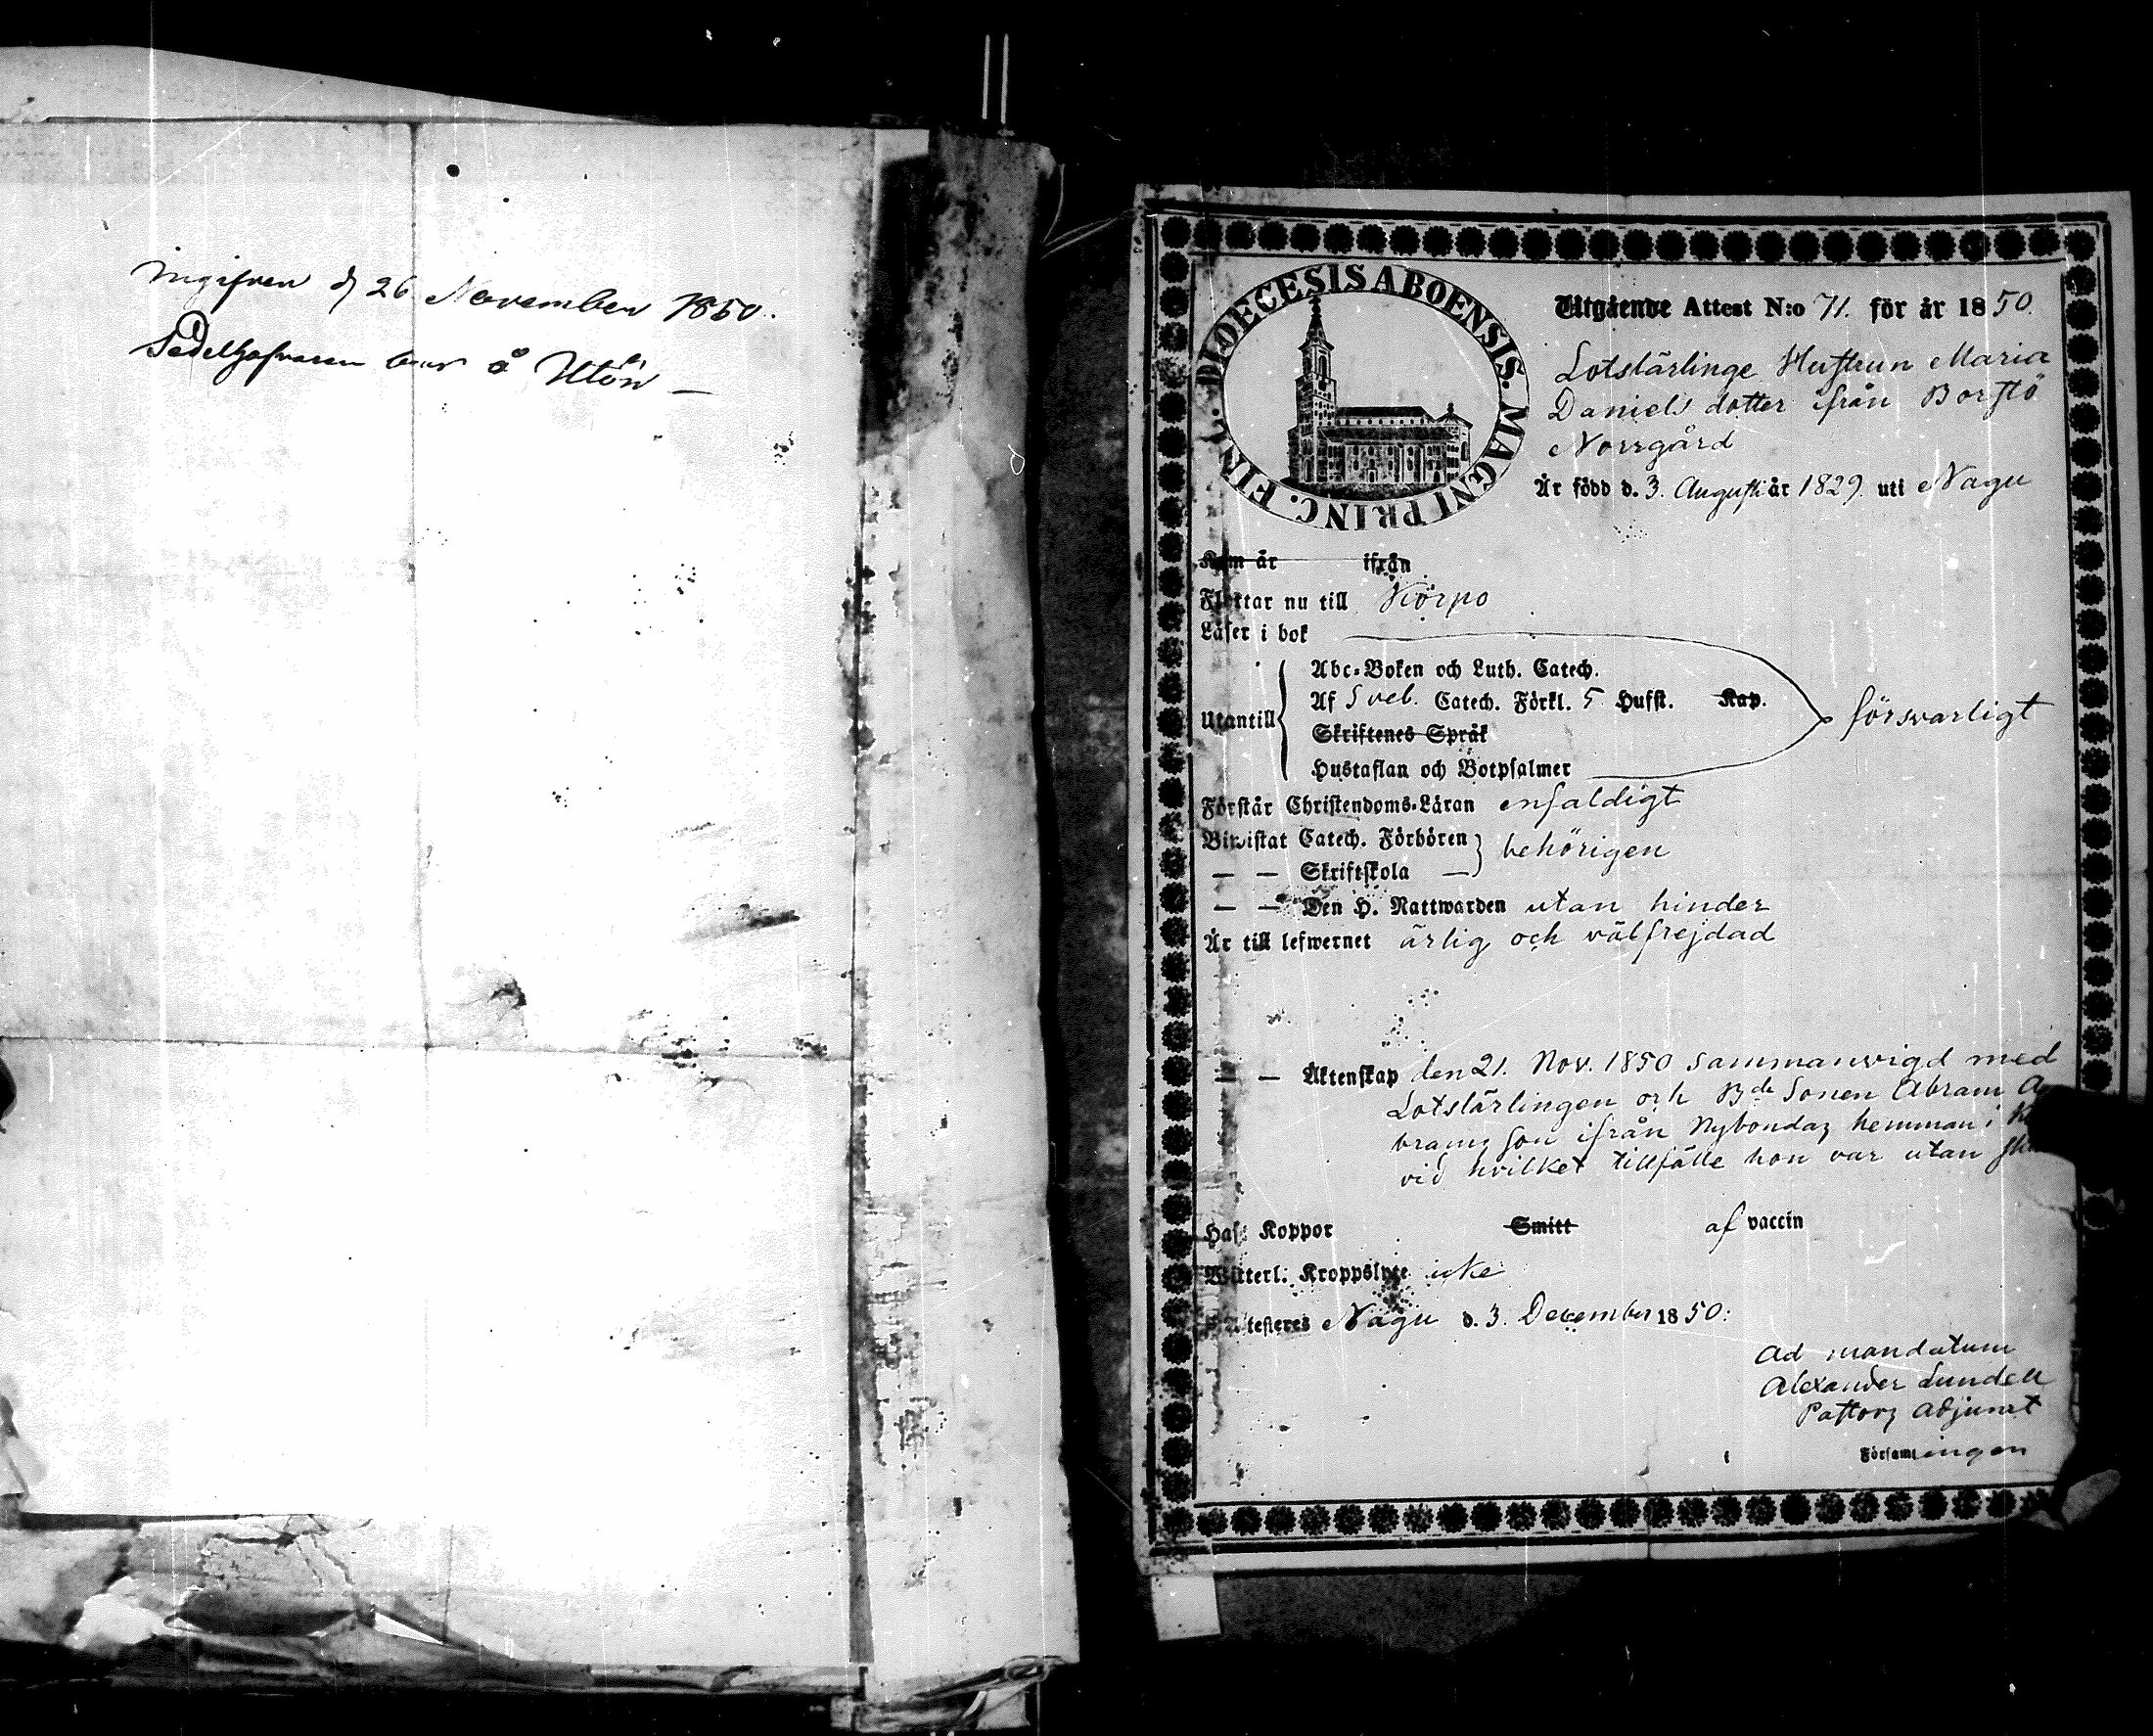 Ingifven d 26 November 1850.
Sedelhafvaren bor å Utön —
DIOECESIS ABOENSIS. MAGNI PRINC. FINL.
Utgående Attest N:o 71. för år 1850.
Lotslärlinge Hustrun Maria
Daniels dotter ifrån Borstö
Norrgård
Är född d. 3. Augusti år 1829. uti Nagu
Kom år ifrån
Flyttar nu till Korpo
Läser i bok
Abc-Boken och Luth. Catech.
Utantill Af Sveb. Catech. Förkl. 5 Hufst. Kap. försvarligt
Skriftenes Språk
Hustaflan och Botpsalmer
Förstår Christendoms-Läran enfaldigt
Biwistat Catech. Förhören behörigen
— — Skriftskola —
— — Den H. Nattwarden utan hinder
Är till lefwernet ärlig och välfrejdad
— — Äktenskap den 21. Nov. 1850 sammanvigd med
Lotslärlingen och Bde Sonen Abram A
brams son ifrån Nybondas hemman i
vid hvilket tillfälle hon var utan
Haft Koppor Smitt af vaccin
Witterl. Kroppslyte icke
Attesteres Nagu d. 3. December 1850:
Ad mandatum
Alexander Lundell
Pastors Adjunct
i Församlingen